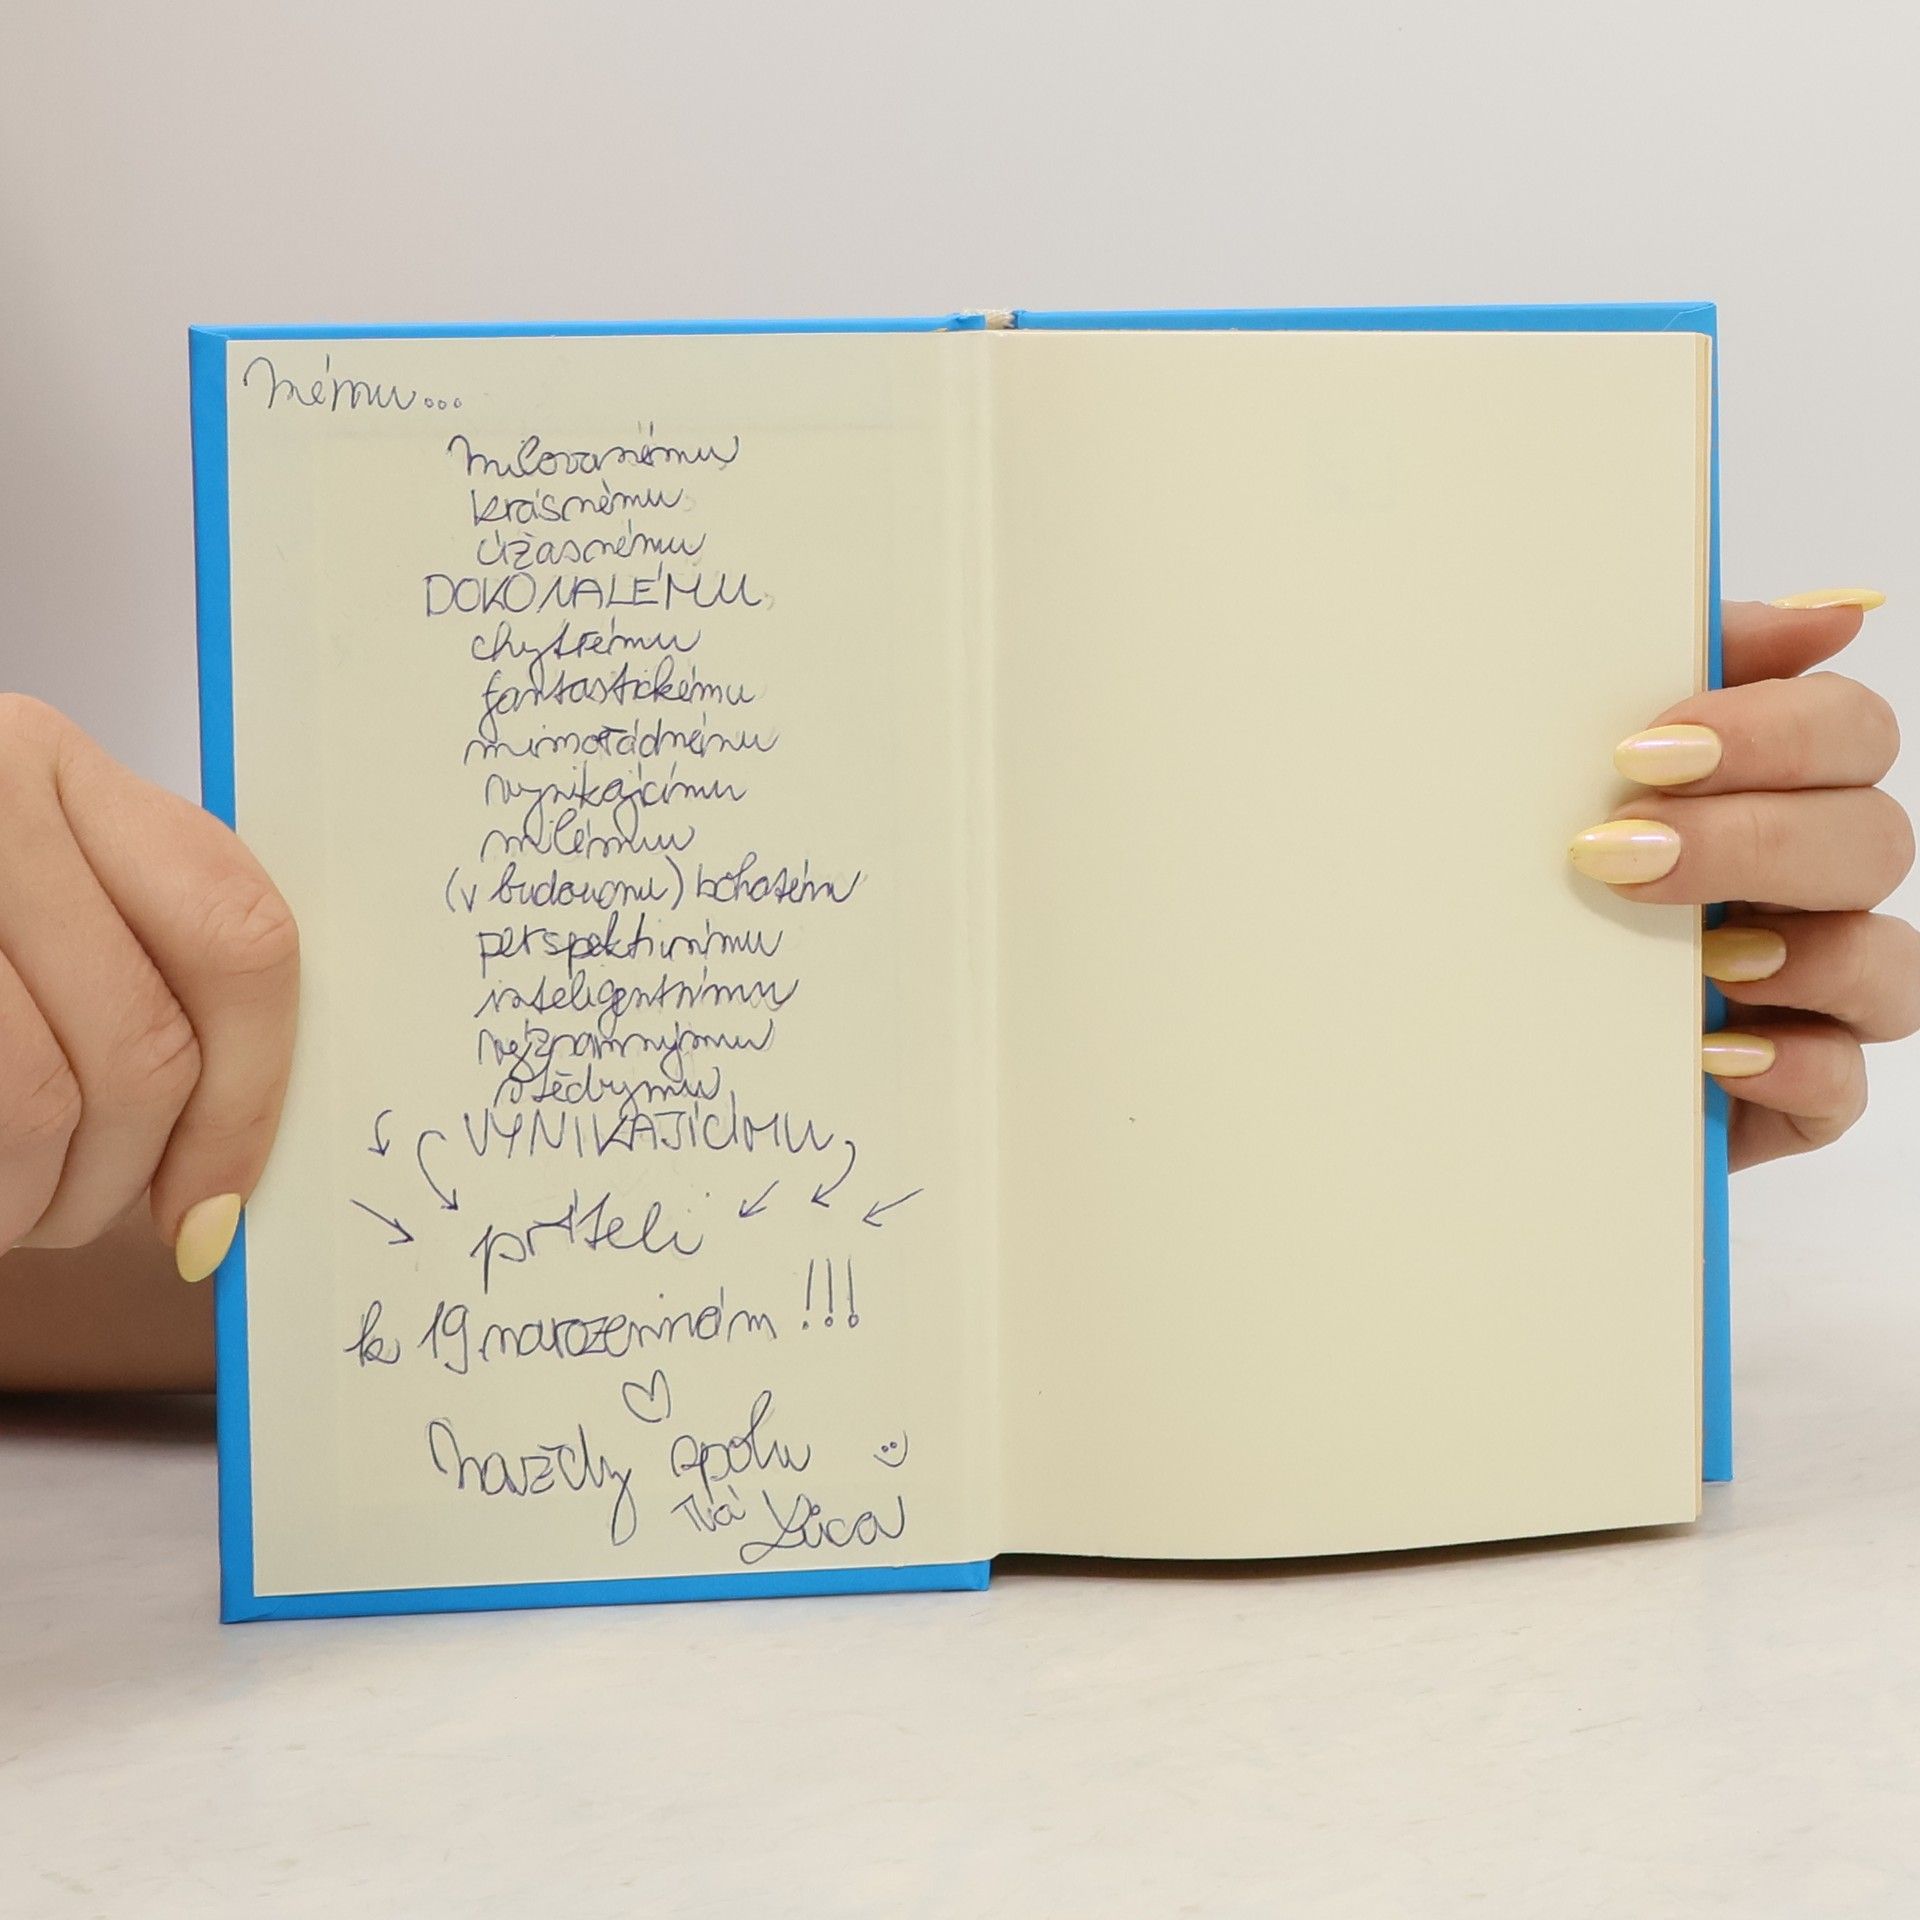 Mému...
milovanému
krásnému
úžasnému
DOKONALÉMU
chytrému
fantastickému
mimořádnému
vynikajícímu
milému
(v budoucnu) bohatému
perspektivnímu
inteligentnímu
významnýmu
štědrýmu
VYNIKAJÍCÍMU
příteli
k 19. narozeninám !!!
Navždy spolu
Tvá Lůca